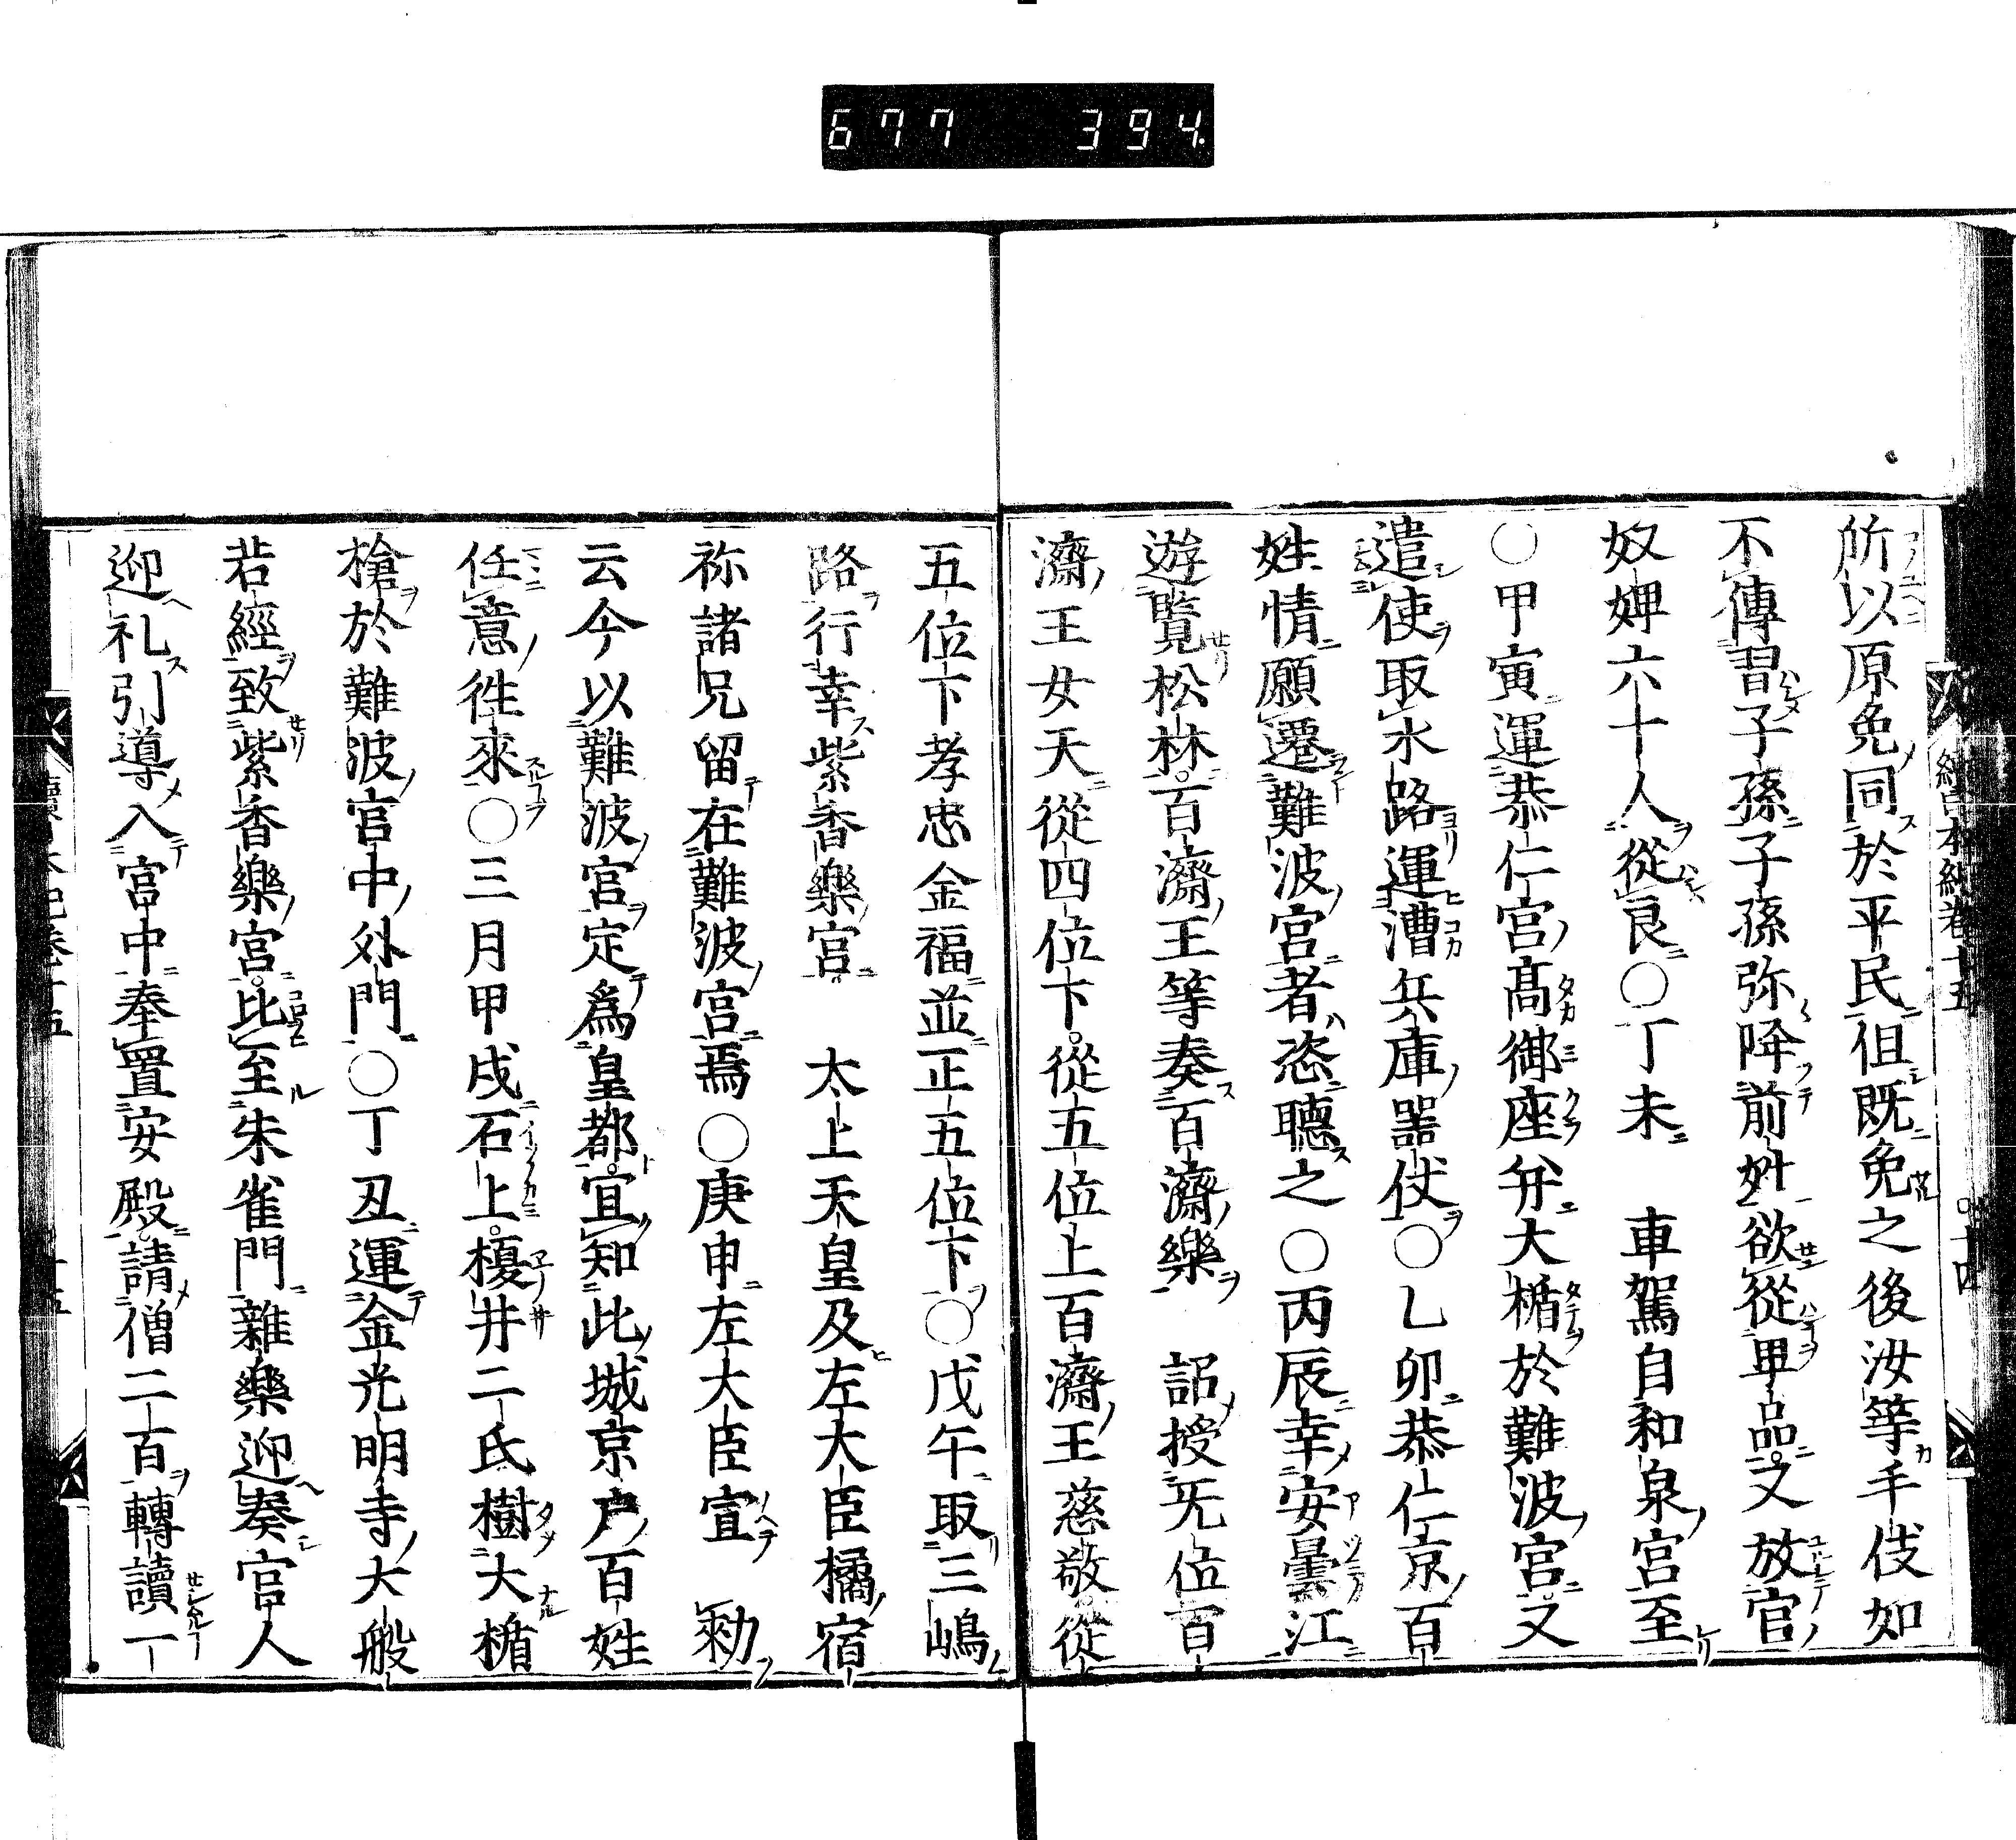 677 394.
所以原免同於平民但既免之後汝等手伎如
不傳習子孫子孫弥降前姓欲從卑品又放官
奴婢六十人從良○丁未　車駕自和泉宮至
○甲寅運恭仁宮高御座并大楯於難波宮又
遣使取水路運漕兵庫器仗○乙卯恭仁京百
姓情願遷難波宮者恣聽之○丙辰幸安曇江
遊覧松林百濟王等奏百濟樂　詔授无位百
濟王女天從四位下從五位上百濟王慈敬從
五位下孝忠金福並正五位下○戊午取三嶋
路行幸紫香樂宮　太上天皇及左大臣橘宿
祢諸兄留在難波宮焉○庚申左大臣宣　勅
云今以難波宮定爲皇都宜知此城京戸百姓
任意徃來○三月甲戌石上榎井二氏樹大楯
槍於難波宮中外門○丁丑運金光明寺大般
若經致紫香樂宮比至朱雀門雜樂迎奏官人
迎礼引導入宮中奉置安殿請僧二百轉讀一